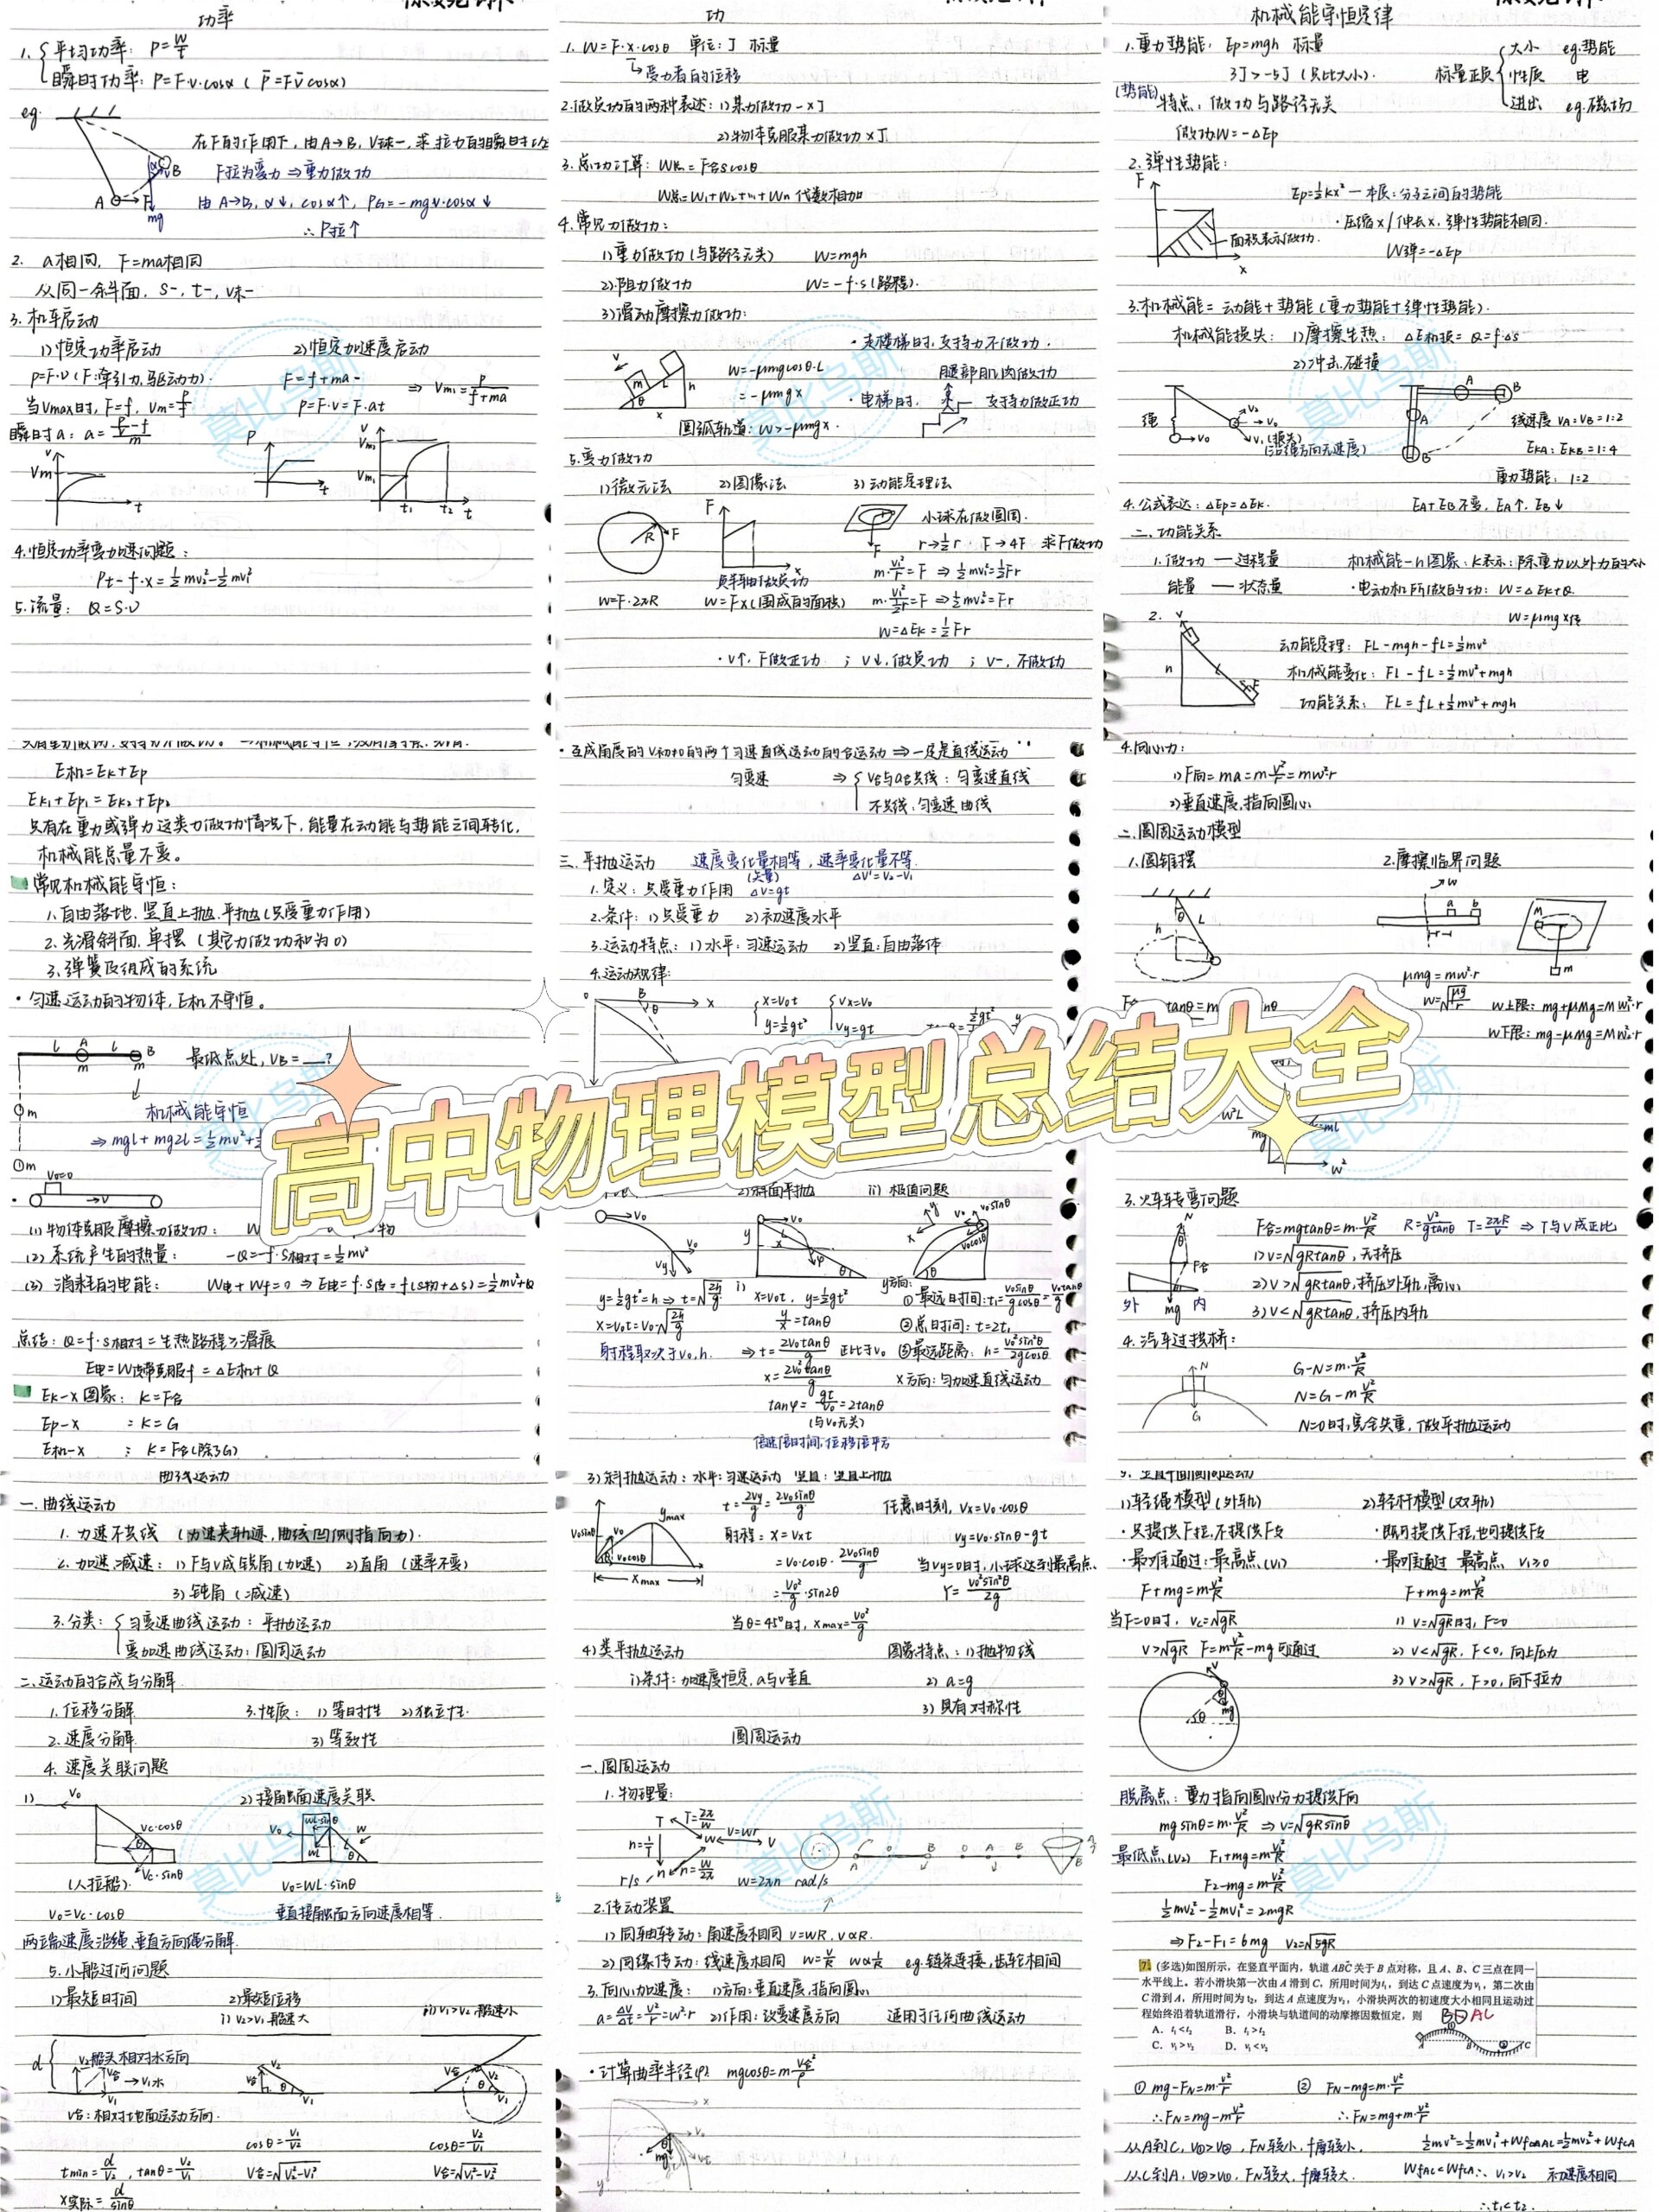 功率
1. 平均功率: P=W/t
瞬时功率: P=F·v·cosα ( P̄=Fv̄cosα)
eg.
在F的作用下, 由A→B, V球一, 求拉力的瞬时功率
F拉为变力 ⇒重力做功
由A→B, α↓, cosα↑, PG=-mgv·cosα↓
∴P拉↑
A F B mg
2. a相同, F=ma相同
从同一斜面, S-, t-, v末-
3. 机车启动
1)恒定功率启动 2)恒定加速度启动
P=F·v (F:牵引力,驱动力). F=f+ma- ⇒ Vm₁=P/(f+ma)
当Vmax时, F=f, Vm=P/f P=F·v=F·at
瞬时a: a=(P/v-f)/m
4.恒定功率变加速问题:
Pt-f·x=½mv₂²-½mv₁²
5.流量: Q=S·v
功
1. W=F·x·cosθ 单位:J 标量
受力者的位移
2.做负功的两种表述: 1)某力做功-×J
2)物体克服某力做功×J
3.总功计算: W总=F合scosθ
W总=W₁+W₂+…+Wn 代数相加
4.常见力做功:
1)重力做功(与路径无关) W=mgh
2)阻力做功 W=-f·s(路程).
3)滑动摩擦力做功:
·走楼梯时,支持力不做功.
W=-μmgcosθ·L 腿部肌肉做功
=-μmgx ·电梯时. 支持力做正功
圆弧轨道: W>-μmgx.
5.变力做功
1)微元法 2)图像法 3)动能定理法
小球在做圆周.
r→½r F→4F 求F做功
m·v₁²/r=F ⇒½mv₁²=½Fr
负半轴做负功
W=F·2πR W=Fx(围成的面积)
W=ΔEk=½Fr
·v↑, F做正功 ; v↓,做负功 ; v-, 不做功
机械能守恒定律
1.重力势能: Ep=mgh 标量
3J>-5J (只比大小). 标量正负 大小 eg.势能
性质 电
进出 eg.磁场
(势能)特点: 做功与路径无关
做功W=-ΔEp
2.弹性势能:
Ep=½kx² 一本质:分子之间的势能
·压缩x/伸长x, 弹性势能相同.
面积表示做功. W弹=-ΔEp
3.机械能=动能+势能(重力势能+弹性势能).
机械能损失: 1)摩擦生热: ΔE机损=Q=f·Δs
2)冲击,碰撞
绳 v₀ V₂ V₁(损失)
(沿绳方向无速度)
线速度 VA:VB=1:2
EkA:EkB=1:4
重力势能: 1:2
4.公式表达: ΔEp=ΔEk. EA+EB不变, EA↑, EB↓
二.功能关系
1.做功 — 过程量 机械能-h图象: k表示:除重力以外力的大小
能量 — 状态量 ·电动机所做的功: W=ΔEk+Q
W=μmgx传
2. 动能定理: FL-mgh-fL=½mv²
机械能变化: FL-fL=½mv²+mgh
功能关系: FL=fL+½mv²+mgh
E机=Ek+Ep
Ek₁+Ep₁=Ek₂+Ep₂
只有在重力或弹力这类力做功情况下,能量在动能与势能之间转化,
机械能总量不变。
常见机械能守恒:
1.自由落地. 竖直上抛.平抛(只受重力作用)
2.光滑斜面.单摆 (其它力做功和为0)
3.弹簧及组成的系统
·匀速运动的物体, E机不守恒。
最低点处, VB=__?
机械能守恒
⇒mgl+mg2l=½mv²+
V₀=0 →v
(1)物体克服摩擦力做功: W 物
(2)系统产生的热量: -Q=-f·s相对=½mv²
(3) 消耗的电能: W电+Wf=0 ⇒E电=f·s传=f(s物+Δs)=½mv²+Q
总结: Q=f·s相对=生热路程>滑痕
E电=W皮带克服f=ΔE机+Q
Ek-x图象: k=F合
Ep-x : k=G
E机-x : k=F合(除了G)
·互成角度的v初≠0的两个匀速直线运动的合运动⇒一定是直线运动
匀变速 ⇒ V合与a合共线: 匀变速直线
不共线: 匀变速曲线
三.平抛运动 速度变化量相等, 速率变化量不等.
(矢量) ΔV'=V₂-V₁
1.定义: 只受重力作用 ΔV=gt
2.条件: 1)只受重力 2)初速度水平
3.运动特点: 1)水平: 匀速运动 2)竖直:自由落体
4.运动规律:
x=v₀t vx=v₀
y=½gt² vy=gt
2)斜面平抛 ii) 极值问题
y=½gt²=h⇒t=√(2h/g) i) x=v₀t, y=½gt² y方向: ①最远时间:t₁=v₀sinθ/gcosθ=v₀tanθ/g
x=v₀t=v₀√(2h/g) y/x=tanθ ②总时间: t=2t₁
射程取决于v₀,h. ⇒t=2v₀tanθ/g 正比于v₀ ③最远距离: h=v₀²sin²θ/2gcosθ
x=2v₀²tanθ/g x方向: 匀加速直线运动
tanφ=gt/v₀=2tanθ
(与v₀无关)
4.向心力:
1)F向=ma=mv²/r=mω²r
2)垂直速度,指向圆心
二.圆周运动模型
1.圆锥摆 2.摩擦临界问题
μmg=mω²r
ω=√(μg/r) ω上限: mg+μMg=Mω₁²·r
ω下限: mg-μMg=Mω₂²·r
高中物理模型总结大全
3.火车转弯问题
F合=mgtanθ=m·v²/R R=v²/gtanθ T=2πR/v ⇒T与v成正比
1)v=√gRtanθ, 无挤压
2)v>√gRtanθ,挤压外轨,离心
3)v<√gRtanθ,挤压内轨
外 mg 内
4.汽车过拱桥:
G-N=m·v²/R
N=G-m·v²/R
N=0时,完全失重, 做平抛运动
曲线运动
一.曲线运动
1. 力速不共线 (力速夹轨迹,曲线凹侧指向力).
2. 加速减速: 1)F与v成锐角(加速) 2)直角 (速率不变)
3)钝角 (减速)
3.分类: 匀变速曲线运动: 平抛运动
变加速曲线运动: 圆周运动
二.运动的合成与分解
1.位移分解 3.性质: 1)等时性 2)独立性.
2.速度分解 3)等效性
4. 速度关联问题
1) 2)接触面速度关联
(人拉船). v₀=ωL·sinθ
v₀=vc·cosθ 垂直接触面方向速度相等.
两端速度沿绳,垂直方向绳分解.
5.小船过河问题
1)最短时间 2)最短位移
i) v₂>v₁ 船速大 ii)v₁>v₂ 船速小
v₂船头相对水方向
v合:相对地面运动方向.
cosθ=v₁/v₂ cosθ=v₂/v₁
tmin=d/v₂, tanθ=v₂/v₁ v合=√(v₂²-v₁²) v合=√(v₁²-v₂²)
x实际=d/sinθ
3)斜抛运动: 水平:匀速运动 竖直: 竖直上抛
t=2vy/g=2v₀sinθ/g 任意时刻, vx=v₀·cosθ
射程: x=vxt vy=v₀·sinθ-gt
=v₀·cosθ·2v₀sinθ/g 当vy=0时,小球达到最高点.
=v₀²/g·sin2θ Y=v₀²sin²θ/2g
当θ=45°时, xmax=v₀²/g
4)类平抛运动 图象特点: 1)抛物线
1)条件: 加速度恒定, a与v垂直 2) a=g
3) 具有对称性
圆周运动
一.圆周运动
1.物理量:
T=2π/ω v=ωr n=1/T n=ω/2π
r/s ω=2πn rad/s
2.传动装置
1)同轴转动: 角速度相同 v=ωR, v∝R.
2)同缘传动: 线速度相同 ω=v/r ω∝1/r eg.链条连接,齿轮相同
3.向心加速度: 1)方向:垂直速度,指向圆心
a=Δv/Δt=v²/r=ω²r 2)作用:改变速度方向 适用于任何曲线运动
·计算曲率半径(ρ) mgcosθ=m·v合²/ρ
1)轻绳模型(外轨) 2)轻杆模型(双轨)
·只提供F拉,不提供F支 ·既可提供F拉,也可提供F支
·最难通过:最高点(v₁) ·最难通过 最高点 v₁≥0
F+mg=mv²/R F+mg=mv²/R
当F=0时, vc=√gR 1) v=√gR时, F=0
v>√gR F=mv²/R-mg可通过 2) v<√gR, F<0, 向上压力
3) v>√gR, F>0,向下拉力
脱离点: 重力指向圆心分力提供F向
mgsinθ=m·v²/R ⇒v=√gRsinθ
最低点(v₂) F₁+mg=mv₁²/R
F₂-mg=mv₂²/R
½mv₂²-½mv₁²=2mgR
⇒F₂-F₁=6mg v₂=√5gR
7. (多选)如图所示，在竖直平面内，轨道 ABC 关于 B 点对称，且 A、B、C 三点在同一
水平线上。若小滑块第一次由 A 滑到 C，所用时间为t₁，到达 C 点速度为v₁，第二次由
C 滑到 A，所用时间为 t₂，到达 A 点速度为v₂，小滑块两次的初速度大小相同且运动过
程始终沿着轨道滑行，小滑块与轨道间的动摩擦因数恒定，则
A. t₁<t₂ B. t₁>t₂
C. v₁>v₂ D. v₁<v₂
① mg-FN=m·v²/r ② FN-mg=m·v²/r
∴FN=mg-mv²/r ∴FN=mg+m·v²/r
从A到C, v①>v②, FN较小, f摩较小.
从C到A, v②>v①, FN较大, f摩较大. WfAC<WfCA∴ v₁>v₂ 初速度相同
∴t₁<t₂.
莫比乌斯